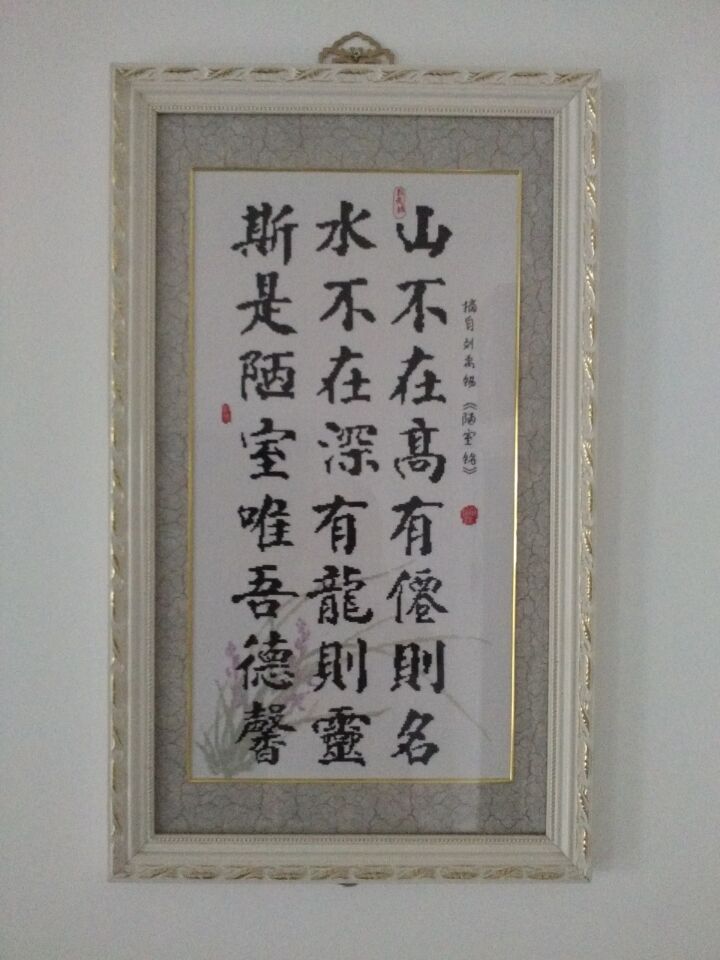 山不在高有僊則名
水不在深有龍則靈
斯是陋室唯吾德馨
摘自刘禹锡《陋室铭》